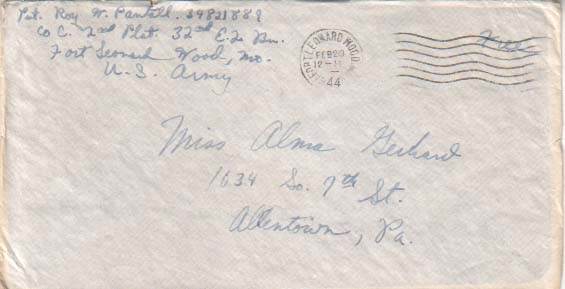 Pvt. Roy W. Pantall. 39821889
Co C. 2nd Plat. 32nd E.Tr Bn.
Fort Leonard Wood, Mo.
U.S. Army
Free
FORT LEONARD WOOD
FEB 20
12-
44
Miss Alma Gerhard
1634 So. 7th St.
Allentown, Pa.